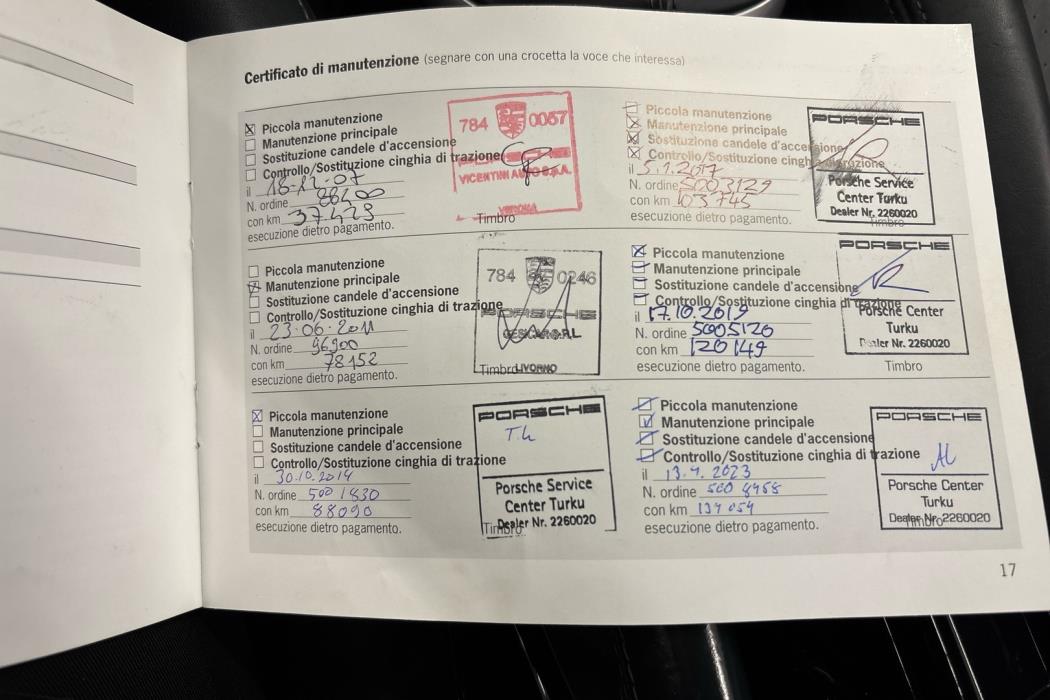 Certificato di manutenzione (segnare con una crocetta la voce che interessa)
Piccola manutenzione
Manutenzione principale
Sostituzione candele d'accensione
Controllo/Sostituzione cinghia di trazione
il 18-12-07
N. ordine 88400
con km 37429
esecuzione dietro pagamento.
784 0067
VICENTINI AUTO S.P.A.
VERONA
Timbro
Piccola manutenzione
Manutenzione principale
Sostituzione candele d'accensione
Controllo/Sostituzione cinghia di trazione
il 23-06-2011
N. ordine 96900
con km 78152
esecuzione dietro pagamento.
784 0246
PORSCHE
Timbro LIVORNO
Piccola manutenzione
Manutenzione principale
Sostituzione candele d'accensione
Controllo/Sostituzione cinghia di trazione
il 30.10.2014
N. ordine 500 1830
con km 88090
esecuzione dietro pagamento.
PORSCHE
Porsche Service
Center Turku
Dealer Nr. 2260020
Timbro
Piccola manutenzione
Manutenzione principale
Sostituzione candele d'accensione
Controllo/Sostituzione cinghia di trazione
il 5.1.2017
N. ordine 5003129
con km 103745
esecuzione dietro pagamento.
PORSCHE
Porsche Service
Center Turku
Dealer Nr. 2260020
Timbro
Piccola manutenzione
Manutenzione principale
Sostituzione candele d'accensione
Controllo/Sostituzione cinghia di trazione
il 17.10.2019
N. ordine 5005126
con km 120149
esecuzione dietro pagamento.
PORSCHE
Porsche Center
Turku
Dealer Nr. 2260020
Timbro
Piccola manutenzione
Manutenzione principale
Sostituzione candele d'accensione
Controllo/Sostituzione cinghia di trazione
il 13.4.2023
N. ordine 500 8458
con km 134 054
esecuzione dietro pagamento.
PORSCHE
Porsche Center
Turku
Dealer Nr. 2260020
Timbro
17